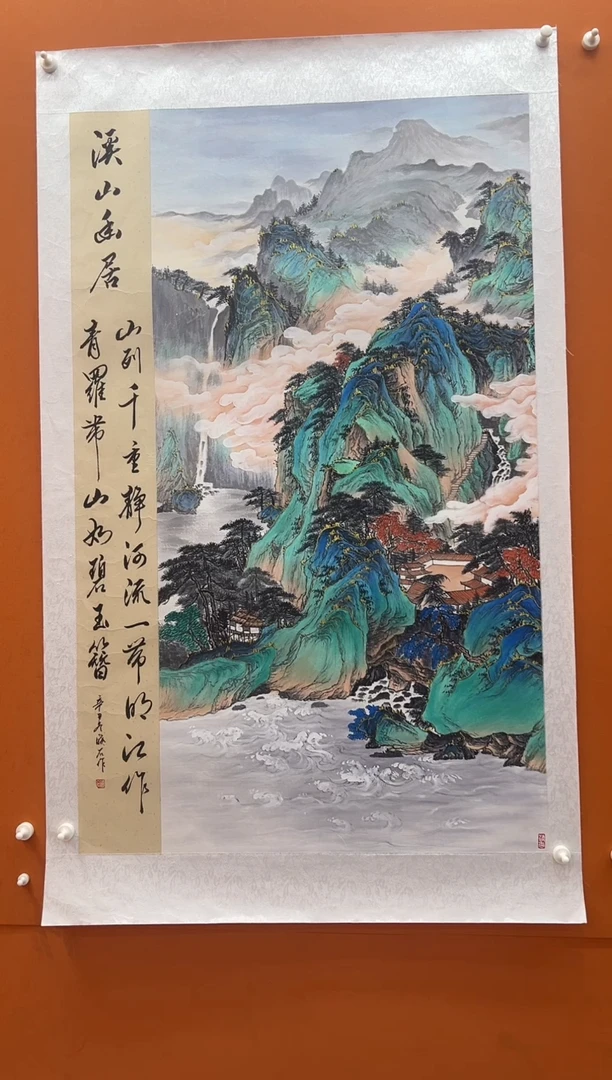 溪山幽居
山列千重靜河流一帶明江作
青羅帶山如碧玉簪
辛丑